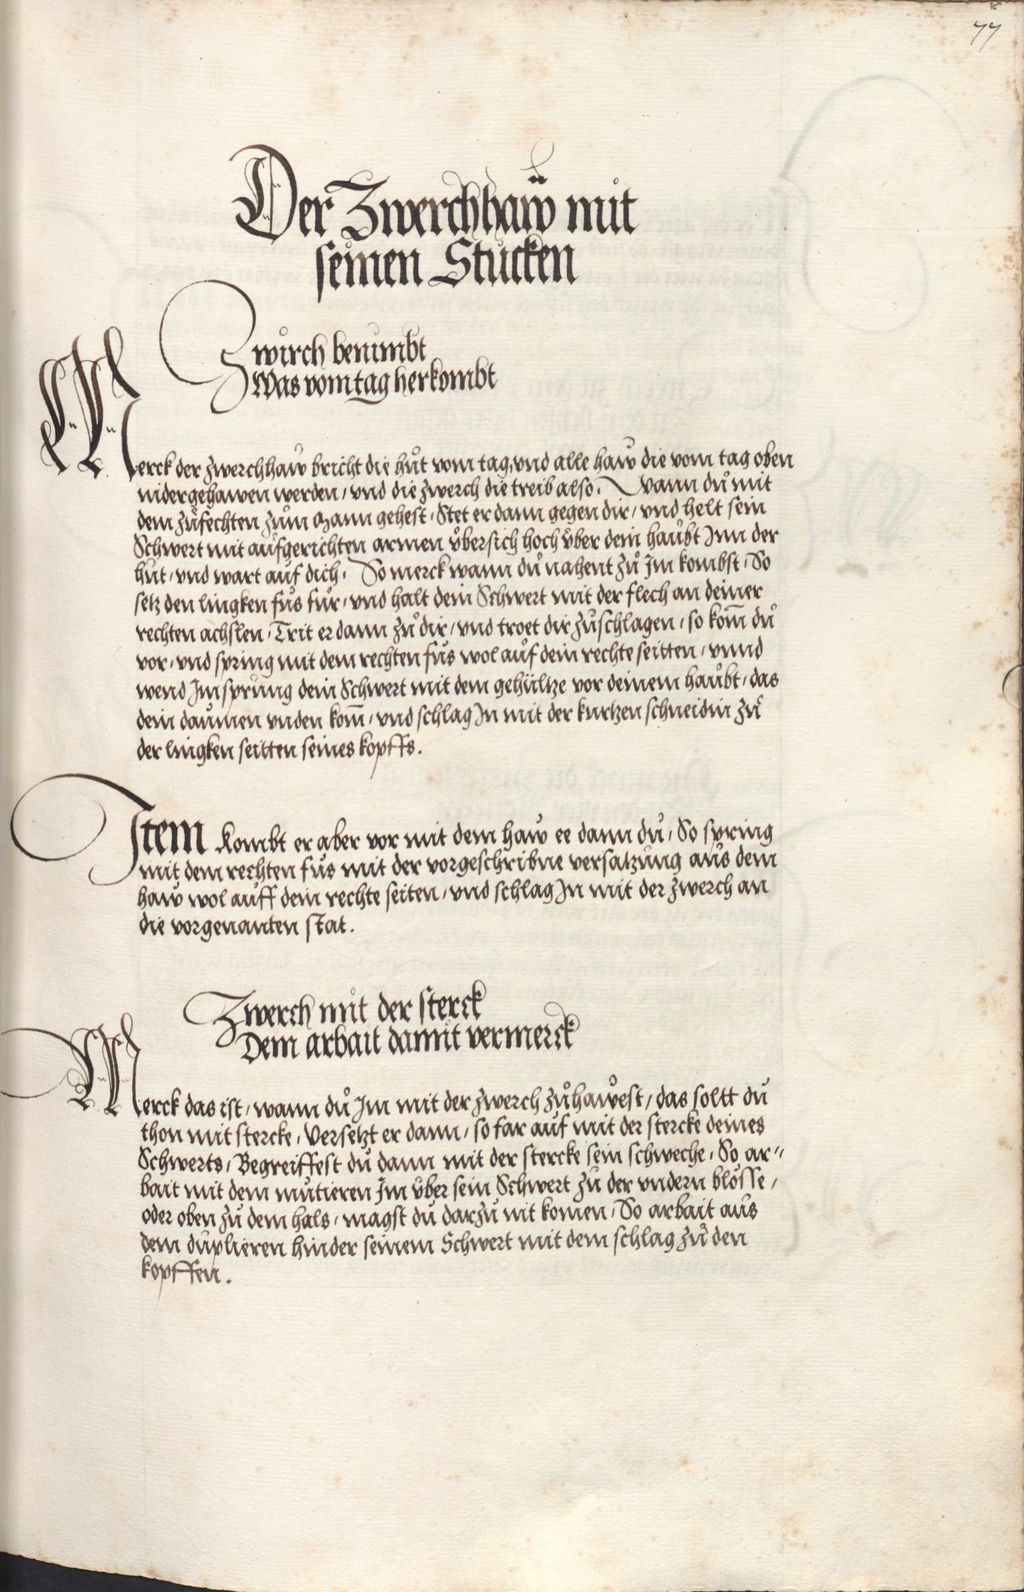 77
Der Zwerchhaw mit
seinen Stucken
Zwirch benimbt
Was vom tag her kombt
Merck der zwerchhaw bricht die hůt vom tag, vnd alle haw die vom tag oben
nidergehawen werden / vnd die zwerch die treib also. Wann dů mit
dem zůfechten zům Mann gehest / Stet er dann gegen dir / vnd helt sein
Schwert mit aůfgerichten armen ůbersich hoch ůber dem haůbt Inn der
hůt / vnd wart aůf dich. So merck wann dů nahent zů Im kombst / So
setz den lingken fůs fůr / vnd halt dein Schwert mit der flech an deiner
rechten achslen / Trit er dann zů dir / vnd troet dir zůschlagen / so kom̅ dů
vor / vnd spring mit dem rechten fůs wol aůf dein rechte seitten / vnnd
wend Im sprůng dein Schwert mit dem gehůltze vor deinem haůbt / das
dein daůmen vnden kom̅ / vnd schlag In mit der kurtzen schneidin zů
der lingken seitten seines kopffs.
Item Kombt er aber vor mit dem haw ee dann dů / So spring
mit dem rechten fůs mit der vorgeschribne versatzůng aůs dem
haw wol aůff dein rechte seiten / vnd schlag In mit der zwerch an
die vorgenanten stat.
Zwerch mit der sterck
Dein arbait damit vermerck
Merck das ist / wann dů Im mit der zwerch zůhaẘest / das soltt dů
thon mit stercke / Versetzt er dann / so far aůf mit der stercke deines
Schwerts / Begreiffest dů dann mit der stercke sein schweche / So ar-
bait mit dem můtieren Im ůber sein Schwert zů der vndern blosse /
oder oben zů dem hals / magst dů darzů nit komen / So arbait aůs
dem důplieren hinder seinem Schwert mit dem schlag zů den
kopffen.